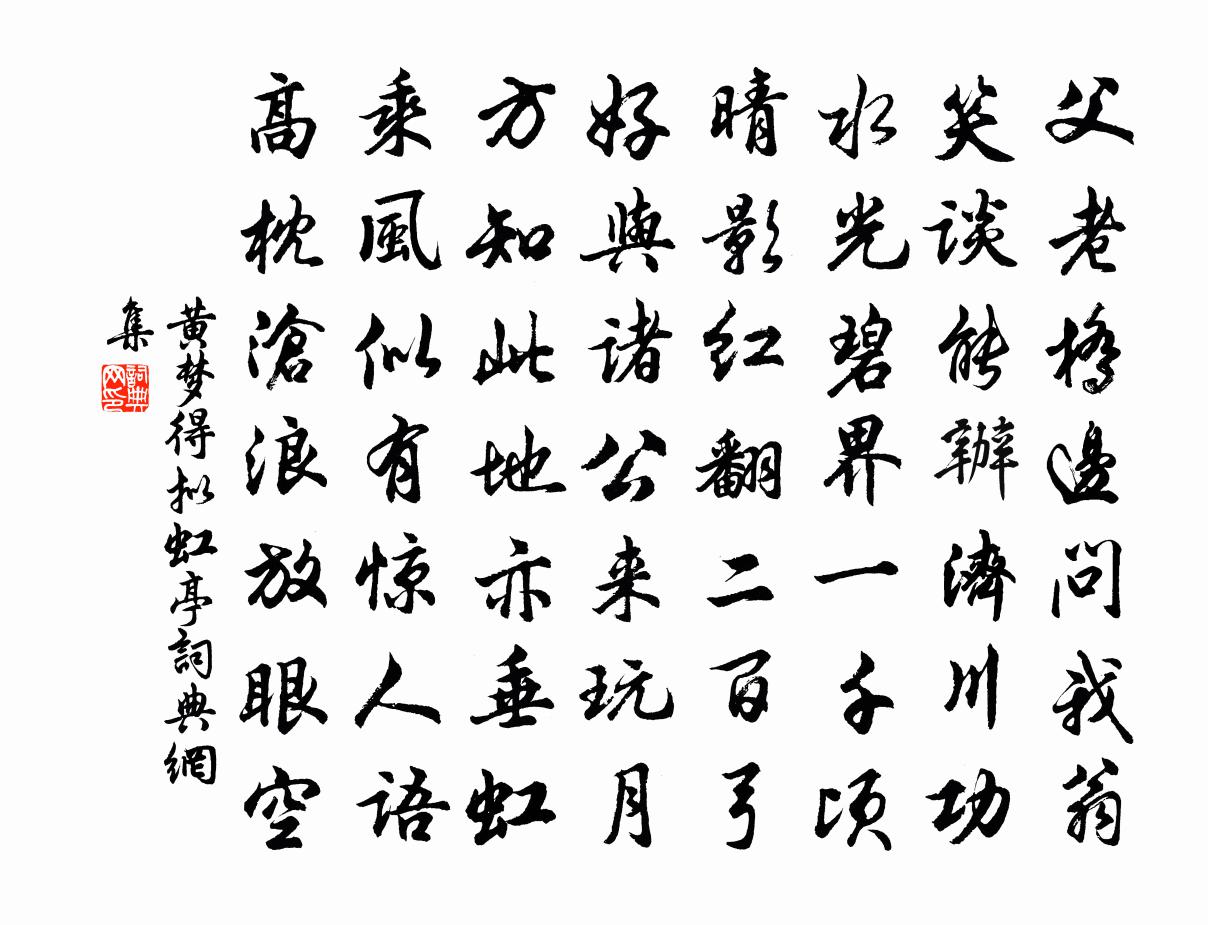 父老橋邊問我翁
笑談能辦濟川功
水光碧界一千頃
晴影红翻二百弓
好與诸公来玩月
方知此地亦垂虹
乘風似有惊人語
高枕滄浪放眼空
黄梦得拟虹亭詞典網
集
詞典网印